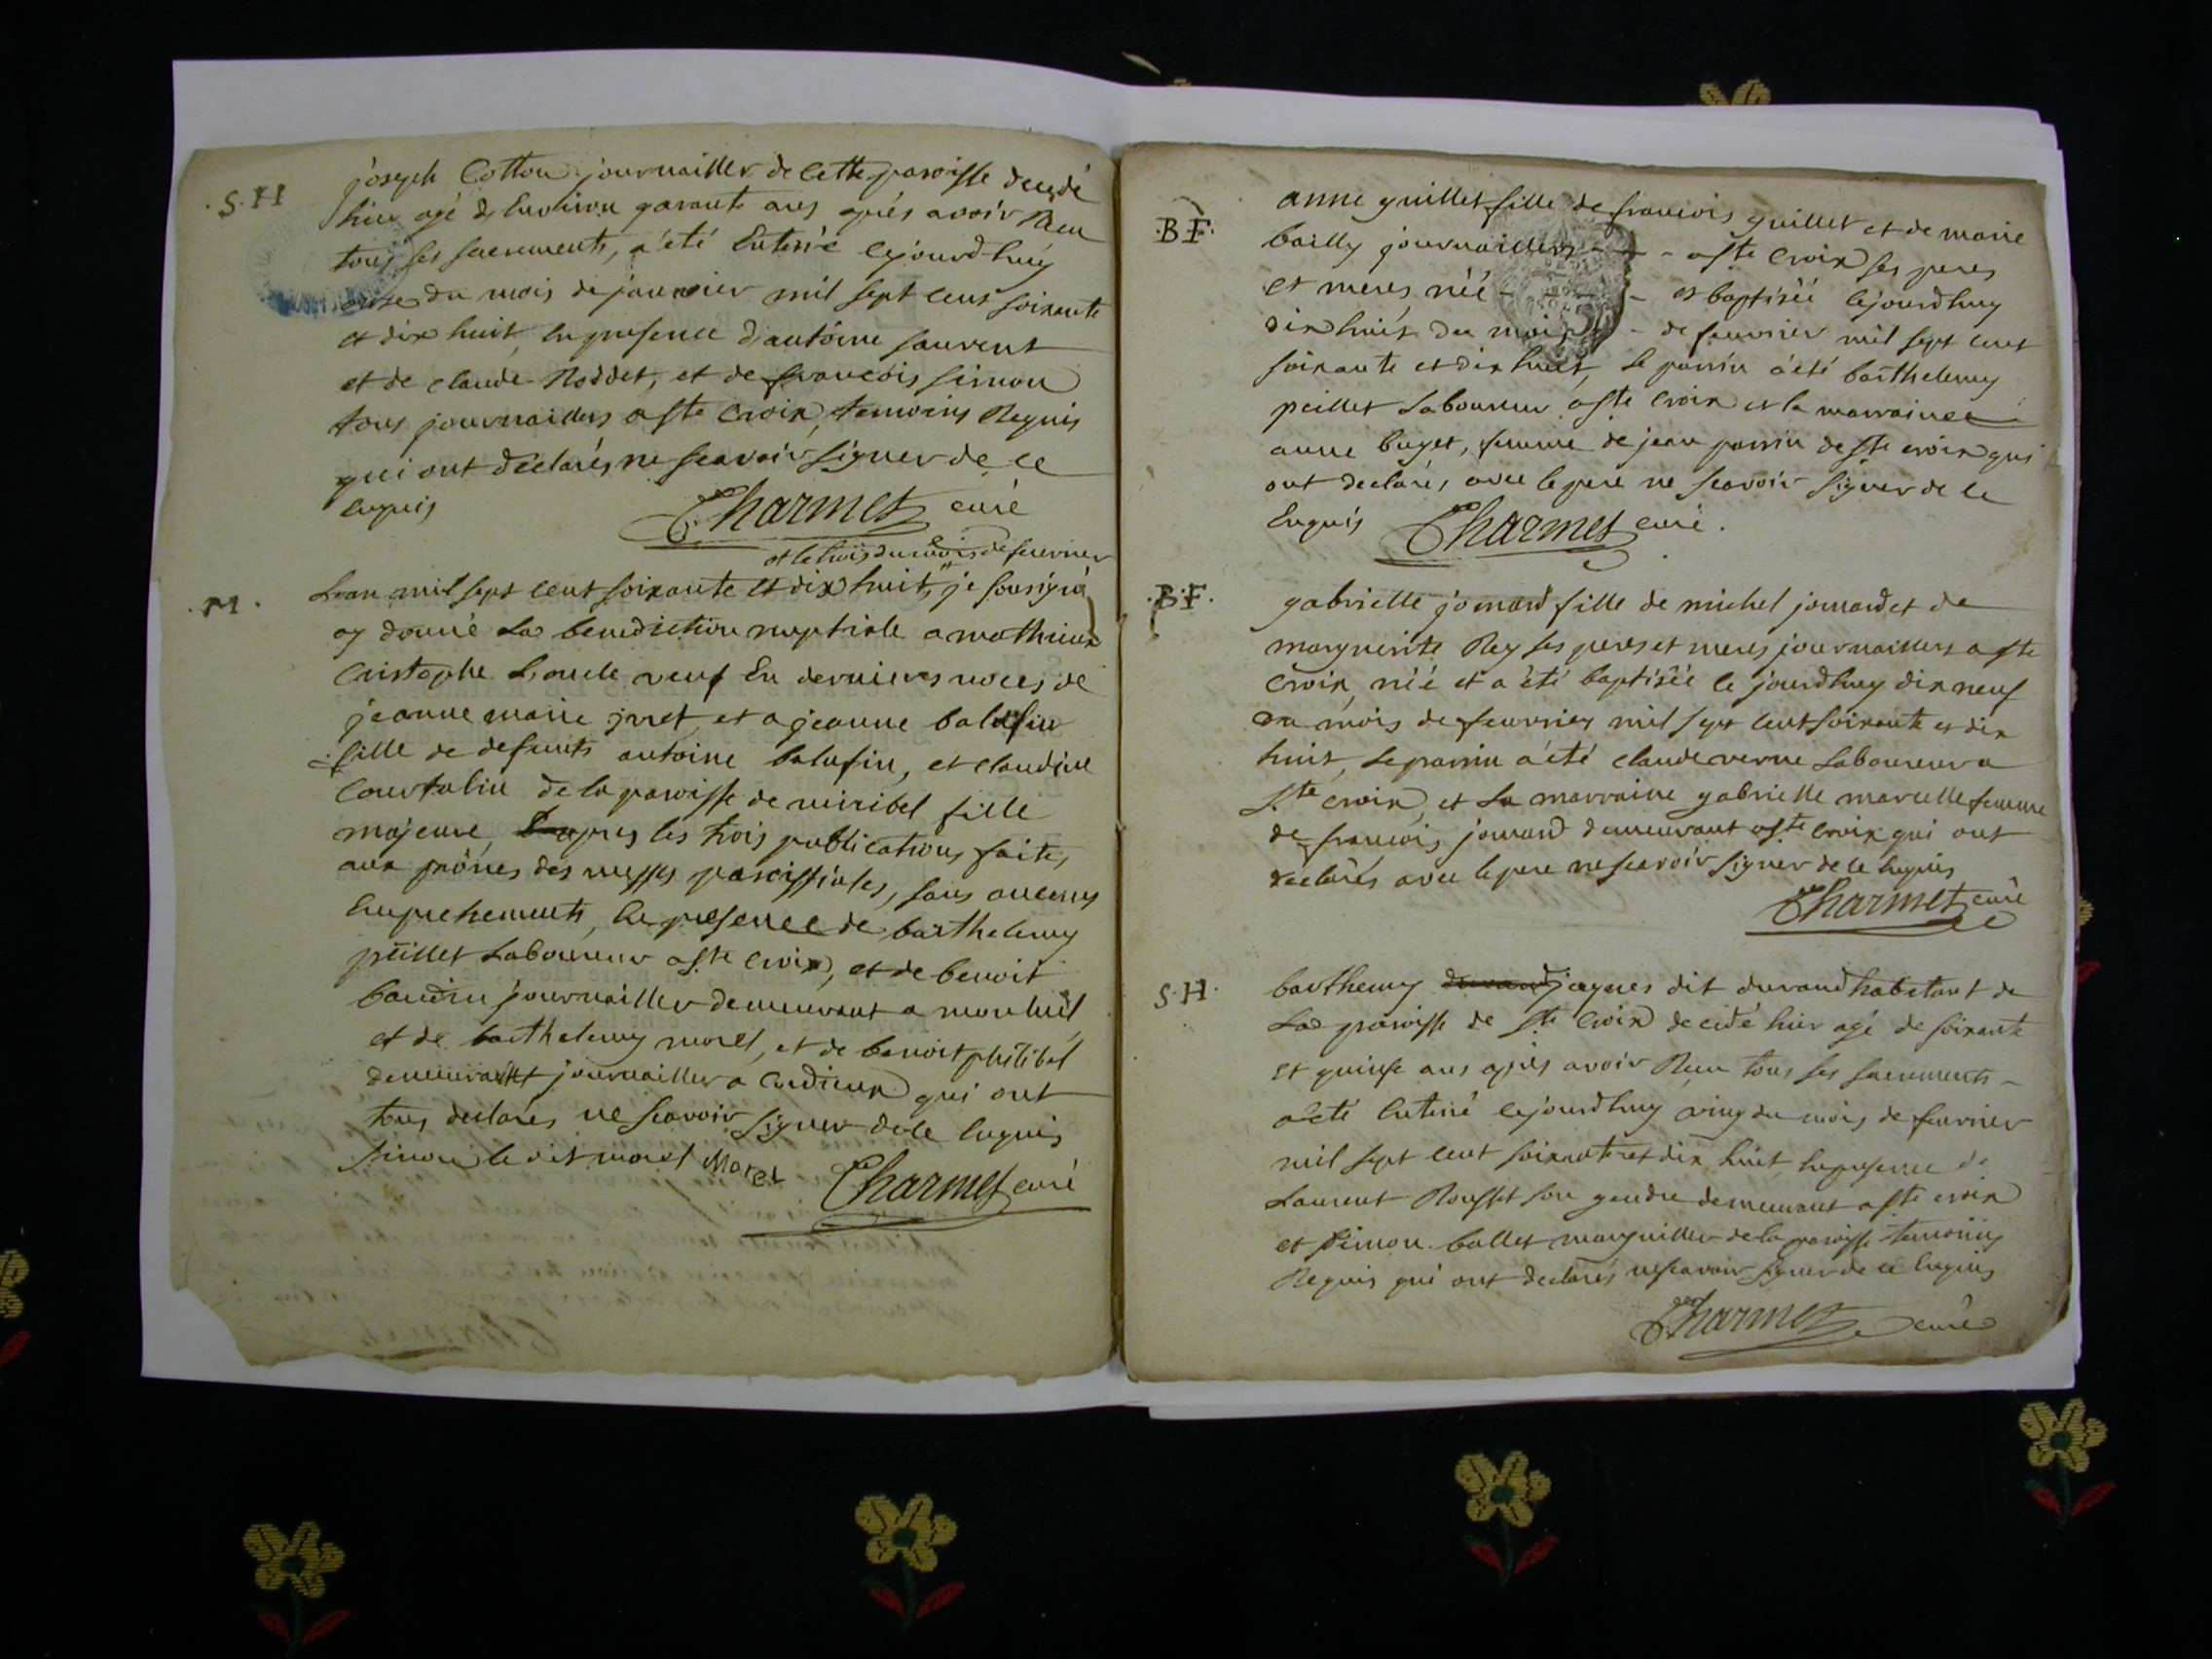 .S.H
joseph Cotton journailler de cette paroisse decedé
hier agé d'environ qarante ans après avoir Reçu
tous ses sacrements, a été Enterré cejourd'huy
onse du mois de janvier mil sept cent soixante
et dix huit, en presence d'antoine laurent
et de claude Noddet, et de françois simon
tous journaillers a ste Croix, temoins Requis
qui ont déclarés ne scavoir signer de ce
enquis
Charmet curé
et le trois du mois de feuvrier
.M.
L'an mil sept cent soixante et dix huit, je sousigné
ay donné La benediction nuptiale a mathieux
Cristophe veuf En dernieres noces de
jeanne marie jvret, et a jeanne balufin
fille de defunts antoine balufin, et claudine
Courtalin de la paroisse de miribel fille
majeure, apres les trois publications faites
aux prônes des messes paroissiales, sans aucuns
Empechements, En presence de barthelemy
peillet Laboureur a ste Croix, et de benoit
baudin journailler demeurant a monluel
et de barthelemy morel, et de benoit philibet
demeurant journailler a Cordieux qui ont
tous declarés ne scavoir signer de ce enquis
sinon le dit morel Morel
Charmet curé
.B.F.
anne guillet fille de francois guillet et de marie
bailly journaillers - - a ste Croix ses peres
et meres, néé - - - et baptiséé cejourdhuy
dix huit du mois - de feuvrier mil sept cent
soixante et dix huit, Le parrin a été barthelemy
peillet Laboureur a ste Croix et la marraine
anne buget, femme de jean parrin de ste croix qui
ont declarés avec le pere ne scavoir signer de ce
Enquis
Charmet curé.
.B.F.
gabrielle jomard fille de michel jomard et de
marguerite Rey ses peres et meres journaillers a ste
Croix, néé et a été baptiséé ce jourdhuy dix neuf
du mois de feuvrier mil sept cent soixante et dix
huit, Le parrin a été claude verne Laboureur a
Ste croix, et La marraine gabrielle marcelle femme
de francois jomard demeurant a ste Croix qui ont
declarés avec le pere ne scavoir signer de ce enquis
Charmet curé
S.H.
barthemy durand jaques dit durand habitant de
La paroisse de ste Croix decedé hier agé de soixante
et quinse ans après avoir Reçu tous ses sacrements -
a été Enterré cejourdhuy cinq du mois de feuvrier
mil sept cent soixante et dix huit, en presence de
Laurent Rousset son gendre demeurant a ste croix
et simon ballet marguillier de la paroisse temoins
Requis qui ont declarés ne scavoir signer de ce Enquis
Charmet curé